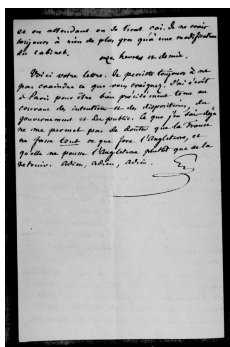 et en attendant on se tient coi. Je ne crois
toujours à rien de plus gros qu'une modification
du cabinet.
onze heures et demie.
Voici votre lettre. Je persiste toujours à ne
pas craindre ce que vous craignez. J'ai écrit
à Paris pour être bien précisément tenu au
courant des intentions et des dispositions, du
gouvernement et du public. Ce que j'en sais déjà
ne me permet pas de douter que la France
ne fasse tout ce que fera l'Angleterre, et
qu'elle ne pousse l'Angleterre plutôt que de la
retenir. Adieu, adieu, adieu.